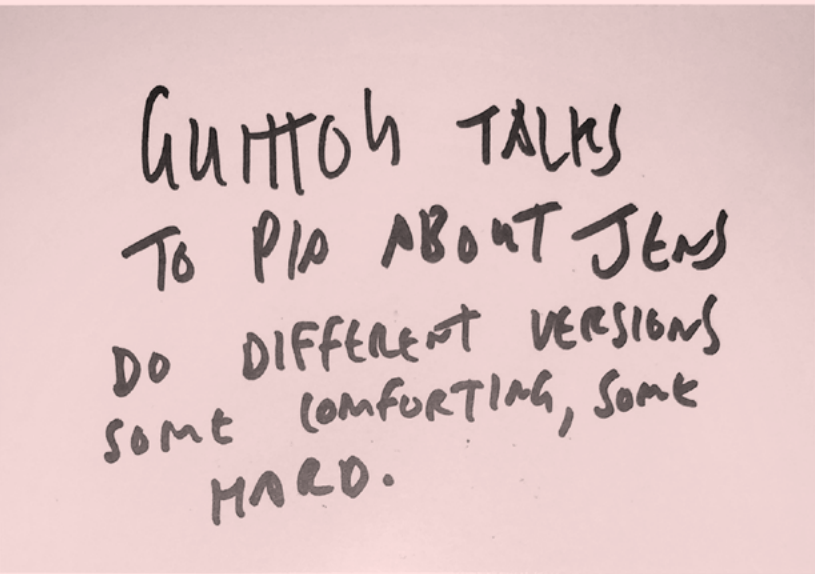 TALKS
TO PIA ABOUT JENS
DO DIFFERENT VERSIONS
SOME COMFORTING, SOME
HARD.